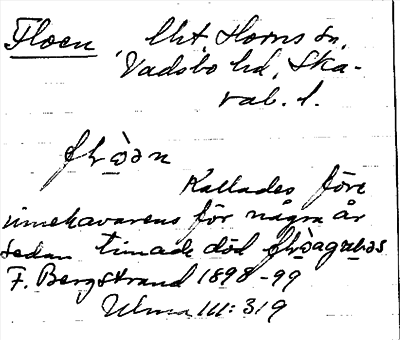 Floen, lht, Horns sn,
Vadsbo hd, Ska-
rab. l.
flὼən
Kallades före
innehavarens för några år
sedan timade död flὼagubəs
F. Bergstrand 1898-99
Ulma 111: 319